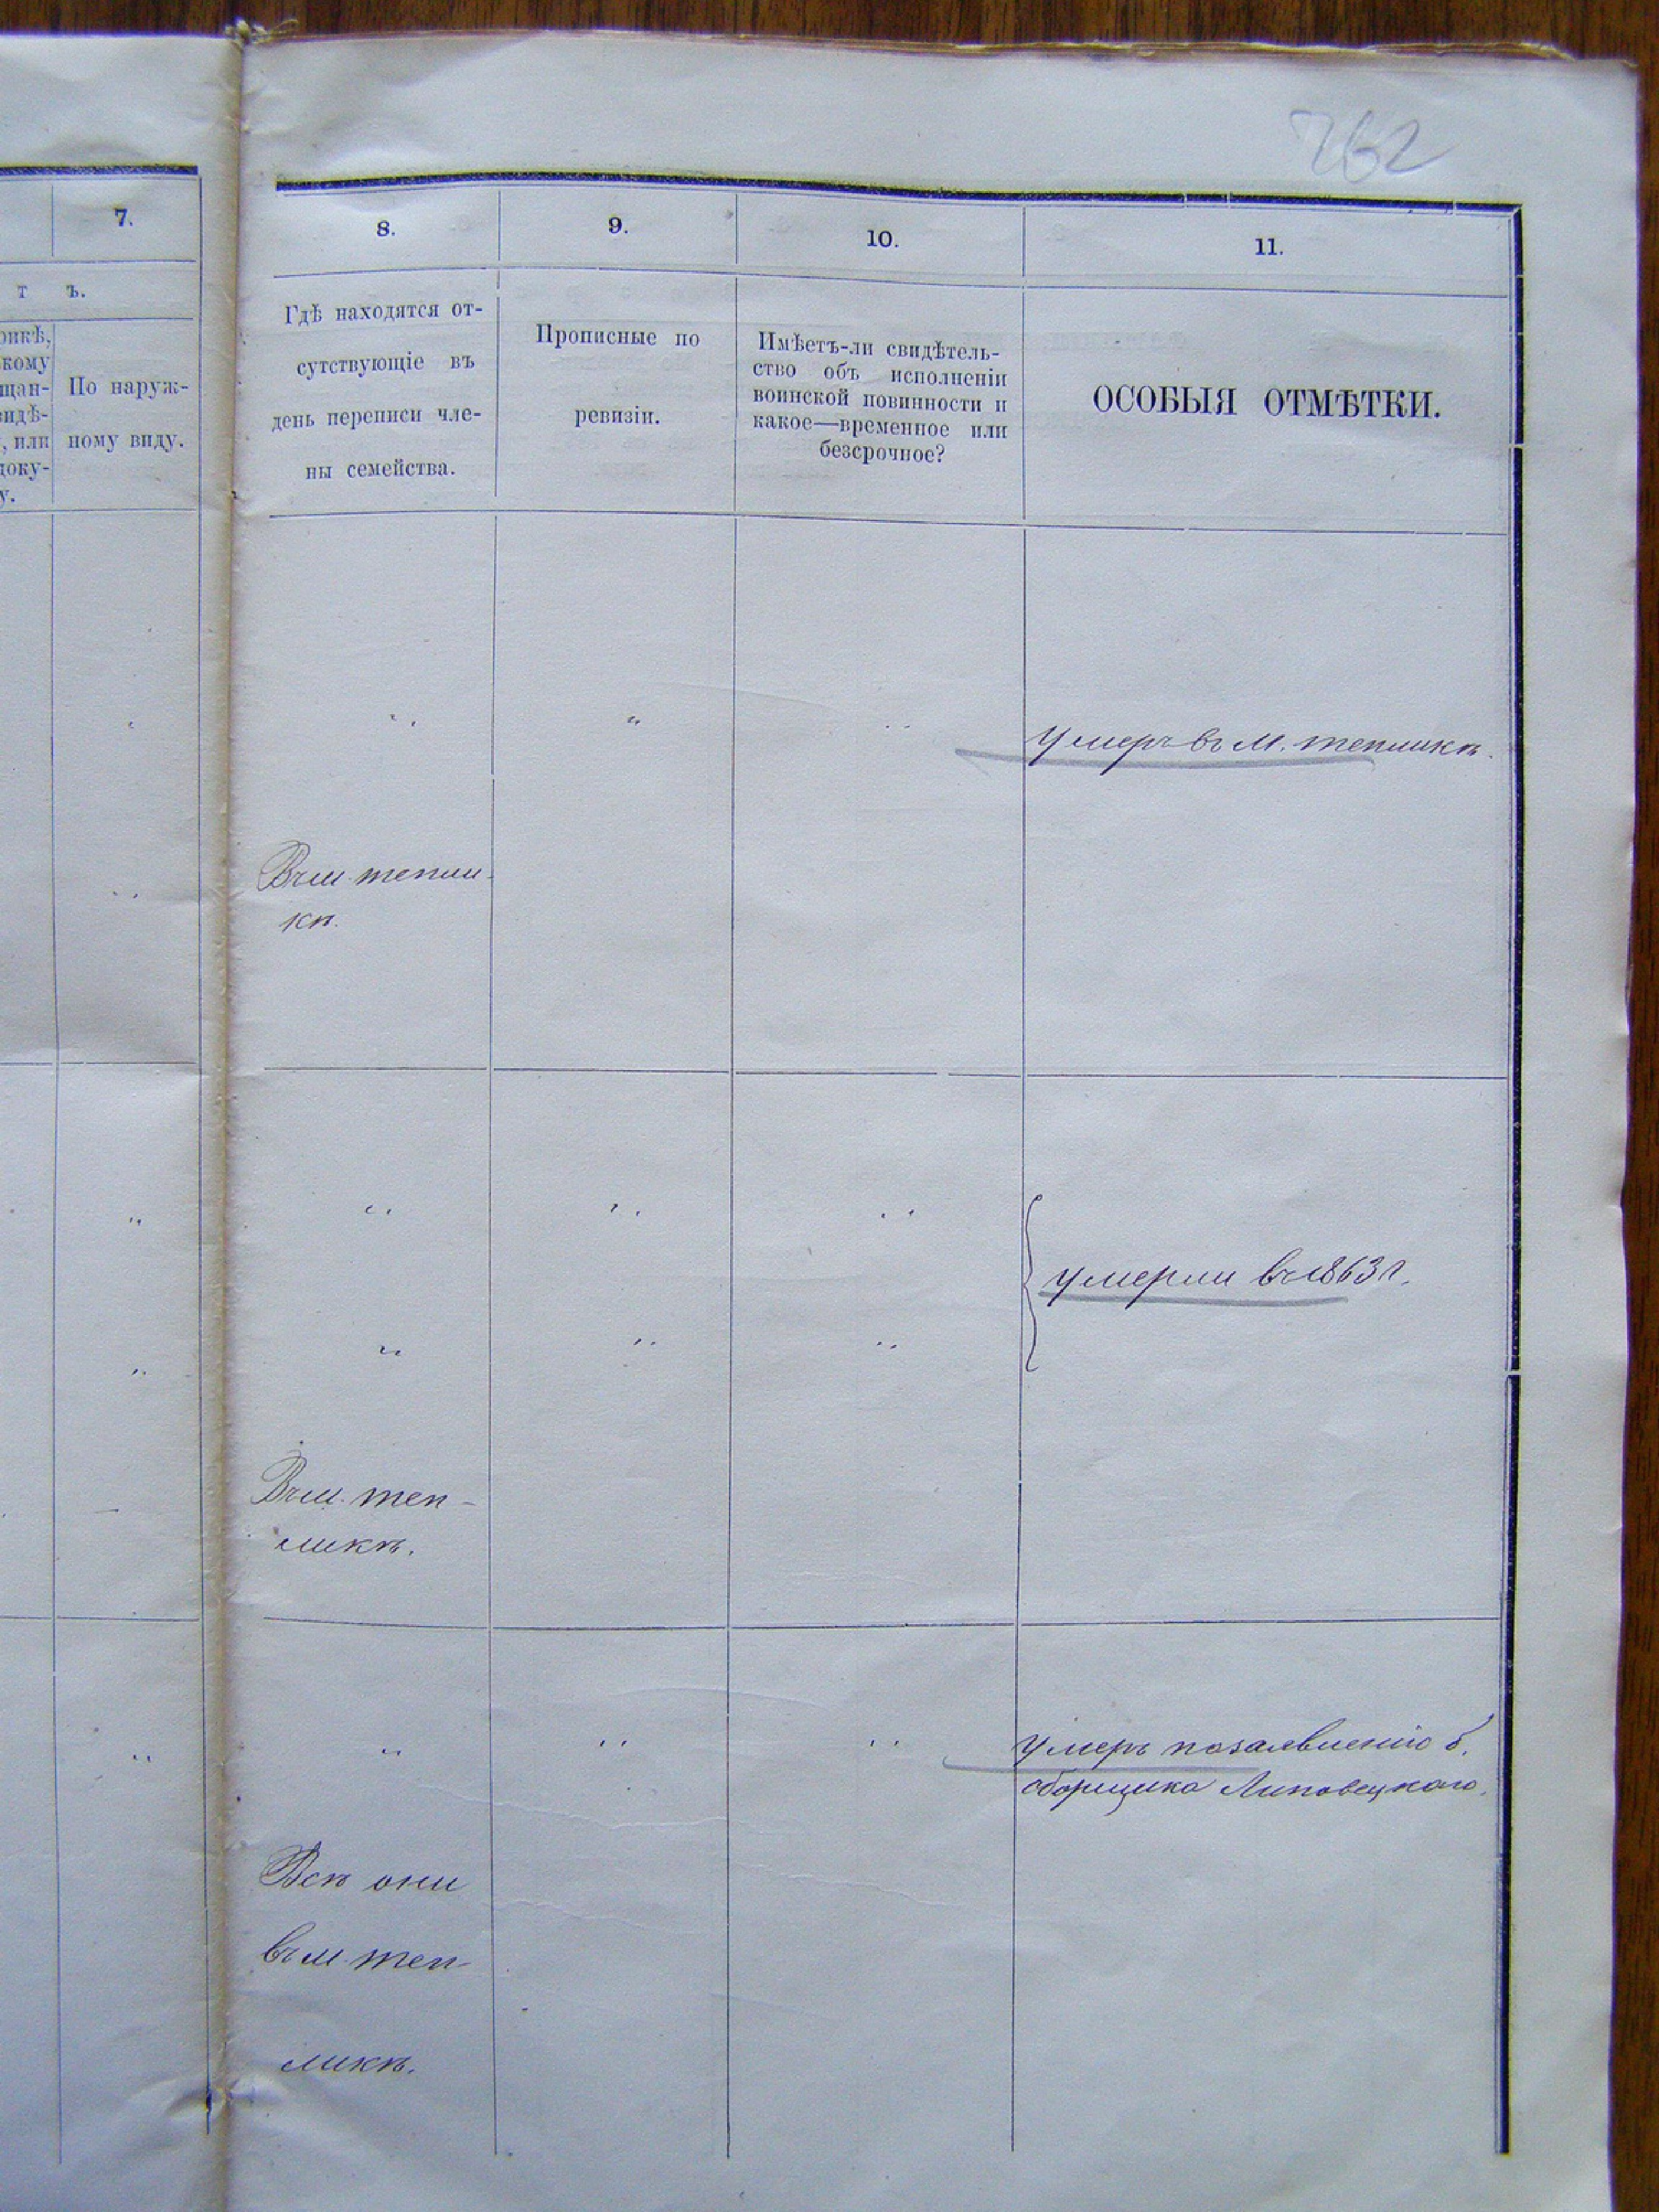 262
7.
8.
9.
10.
11.
т ъ.
По наруж-
ному виду.
Гдѣ находятся от-
сутствующіе въ
день переписи чле-
ны семейства.
Прописные по
ревизіи.
Имѣетъ-ли свидѣтель-
ство объ исполненіи
воинской повинности и
какое—временное или
безсрочное?
ОСОБЫЯ ОТМѢТКИ.
Умеръ въ М. тепликѣ.
Въ м. тепли-
кѣ.
умерли въ 1863 г.
Въ м. теп-
ликѣ.
Умеръ по заявленію б.
сборщика Липовецкаго.
Всѣ они
въ м. теп-
ликѣ.